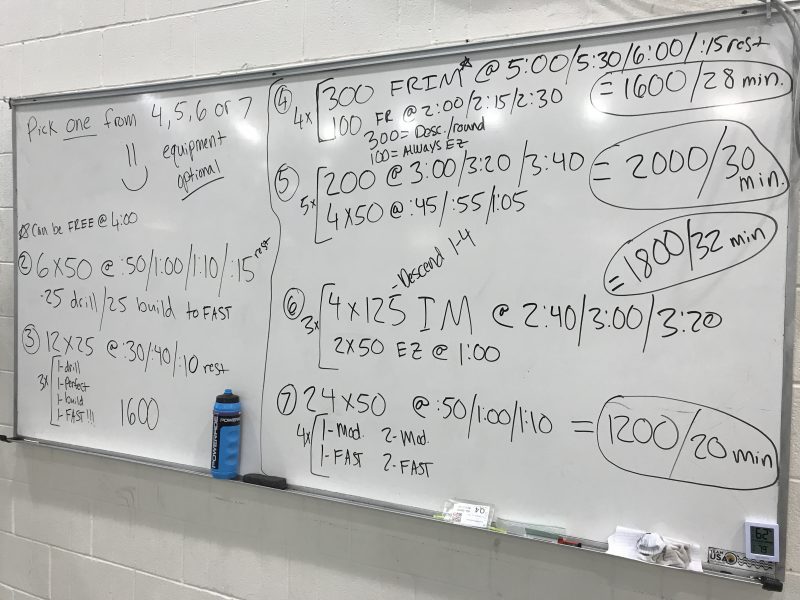 Pick one from 4, 5, 6 or 7
equipment
optional
☆ Can be FREE @ 4:00
② 6x50 @ :50/1:00/1:10/:15 rest
·25 drill/25 build to FAST
③ 12x25 @ :30/:40/:10 rest
3x
1-drill
1-perfect
1-build
1-FAST!!!
1600
④ 4x 300 FRIM☆ @ 5:00/5:30/6:00/:15 rest
100 FR @ 2:00/2:15/2:30
300= Desc./round
100= ALWAYS EZ
= 1600/28 min.
⑤ 5x 200 @ 3:00/3:20/3:40
4x50 @ :45/:55/1:05
= 2000/30 min.
-Descend 1-4
⑥ 3x 4x125 IM @ 2:40/3:00/3:20
2x50 EZ @ 1:00
= 1800/32 min
⑦ 24x50 @ :50/1:00/1:10
4x
1-Mod. 2-Mod.
1-FAST 2-FAST
= 1200/20 min
POWERADE
POWER
Q4
USA
62